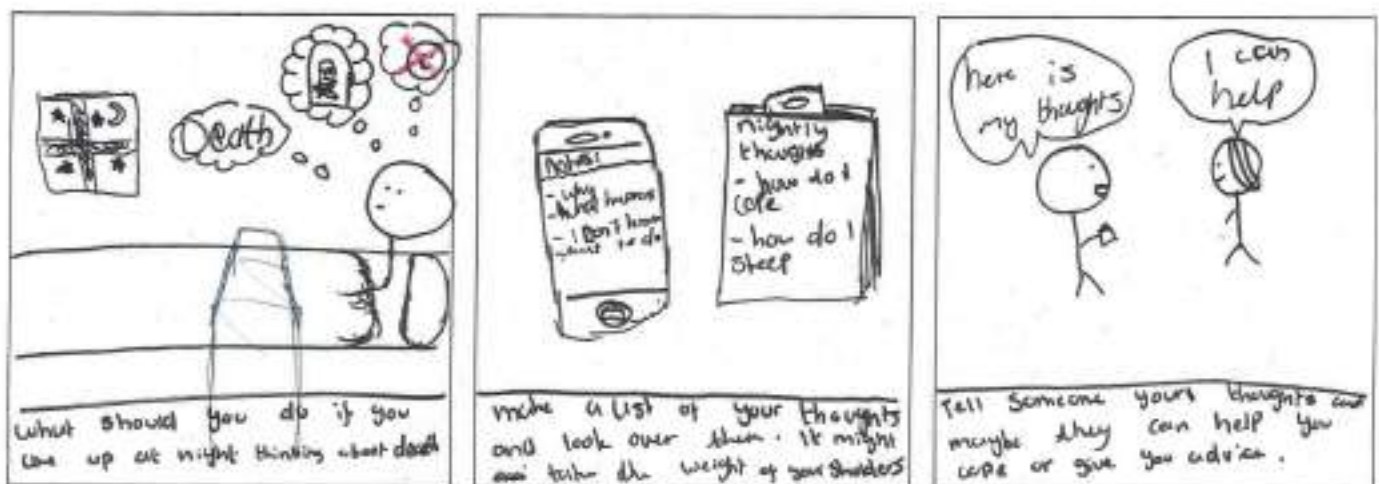 Death
RIP
What should you do if you
are up at night thinking about death
Notes:
- why
- I Don't know
what to do
nightly
thoughts
- how do I
cope
- how do I
sleep
make a list of your thoughts
and look over them. It might
take the weight of your sholders
here is
my thoughts
I can
help
Tell someone yours thoughts and
maybe they can help you
cope or give you advice.